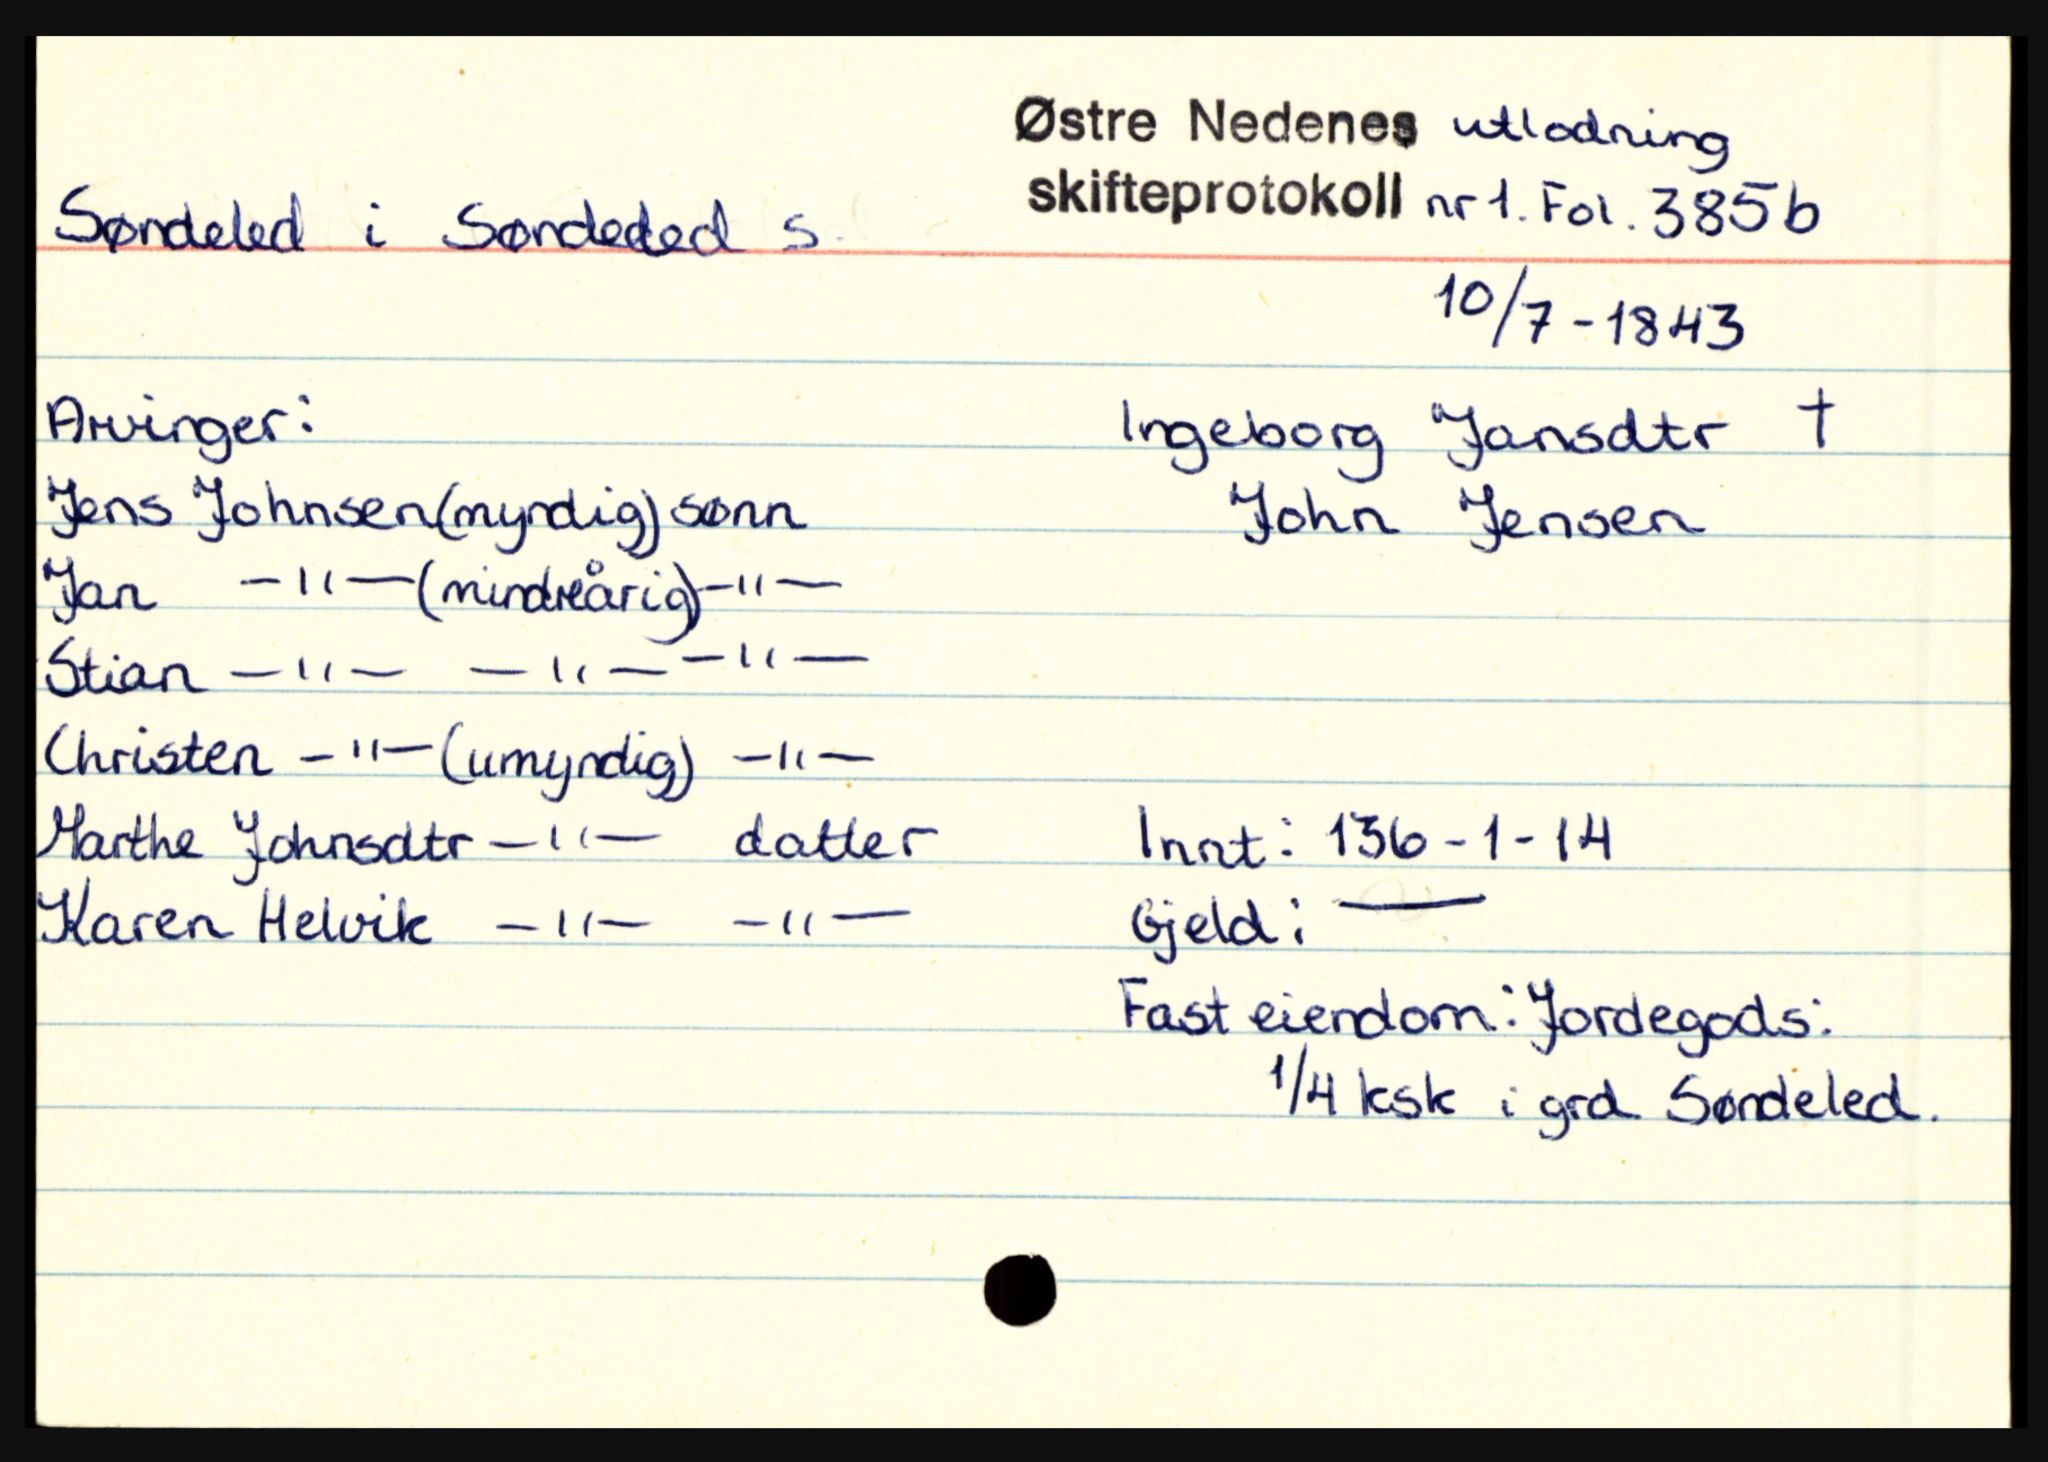 Østre Nedenes utlodning
skifteprotokoll nr 1. Fol. 385b
Søndeled i Søndeled s.
10/7-1843
Arvinger:
Jens Johnsen (myndig) sønn
Jan —"— (mindreårig) —"—
Stian —"— —"— —"—
Christen —"— (umyndig) —"—
Marthe Johnsdtr —"— datter
Karen Helvik —"— —"—
Ingeborg Jansdtr †
John Jensen
Innt: 136-1-14
Gjeld: —
Fast eiendom: Jordegods:
1/4 ksk i grd. Søndeled.